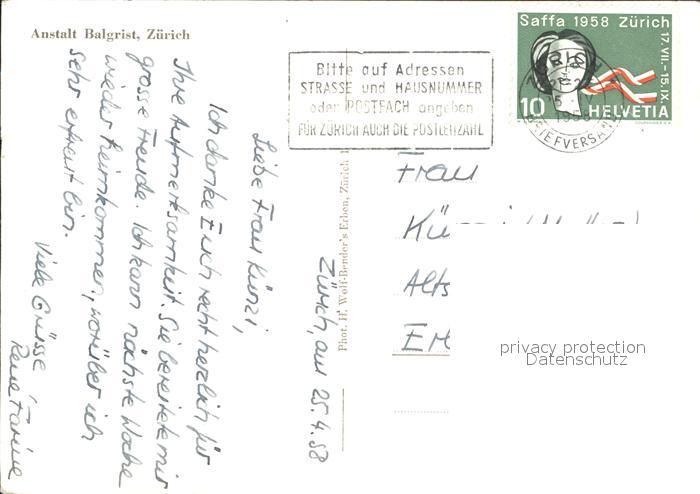 Anstalt Balgrist, Zürich
Bitte auf Adressen
STRASSE und HAUSNUMMER
oder POSTFACH angeben
FÜR ZÜRICH AUCH DIE POSTLEITZAHL
Saffa 1958 Zürich
17.VII.-15.IX.
10 HELVETIA
1958
BRIEFVERSAND
Zürich, am 25.4.58
Liebe Frau Künzi,
Ich danke Euch recht herzlich für
Ihre Aufmerksamkeit. Sie bereitete mir
grosse Freude. Ich kann nächste Woche
wieder heimkommen, worüber ich
sehr erfreut bin.
Viele Grüsse
Phot. H. Wolf-Bender's Erben, Zürich 1
Frau
Kü
Alts
privacy protection
Datenschutz